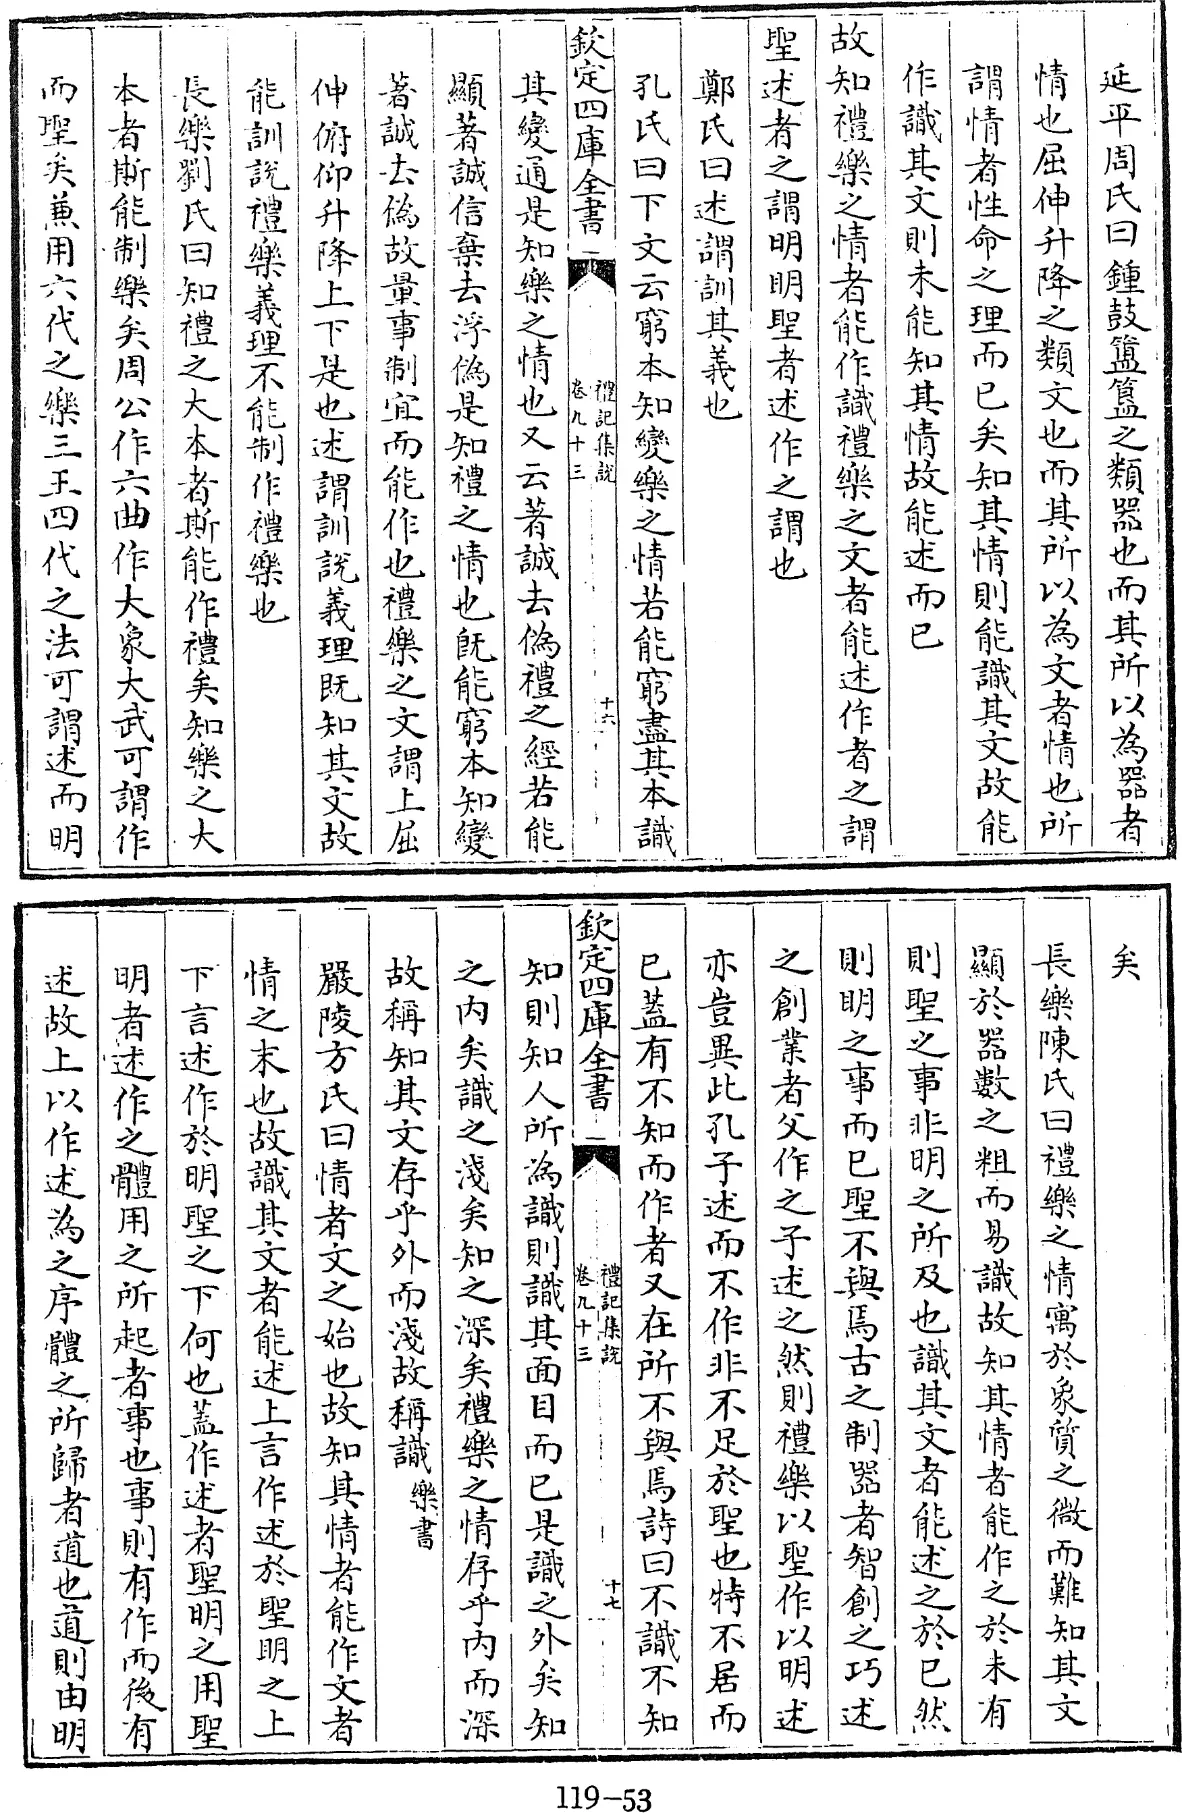 延平周氏曰鍾鼓簠簋之類器也而其所以為器者
情也屈伸升降之類文也而其所以為文者情也所
謂情者性命之理而已矣知其情則能識其文故能
作識其文則未能知其情故能述而已
故知禮樂之情者能作識禮樂之文者能述作者之謂
聖述者之謂明明聖者述作之謂也
鄭氏曰述謂訓其義也
孔氏曰下文云窮本知變樂之情若能窮盡其本識
欽定四庫全書
禮記集說
卷九十三
十六
其變通是知樂之情也又云著誠去偽禮之經若能
顯著誠信棄去浮偽是知禮之情也既能窮本知變
著誠去偽故量事制宜而能作也禮樂之文謂上屈
伸俯仰升降上下是也述謂訓說義理既知其文故
能訓說禮樂義理不能制作禮樂也
長樂劉氏曰知禮之大本者斯能作禮矣知樂之大
本者斯能制樂矣周公作六曲作大象大武可謂作
而聖矣兼用六代之樂三王四代之法可謂述而明
矣
長樂陳氏曰禮樂之情寓於象質之微而難知其文
顯於器數之粗而易識故知其情者能作之於未有
則聖之事非明之所及也識其文者能述之於已然
則明之事而已聖不與焉古之制器者智創之巧述
之創業者父作之子述之然則禮樂以聖作以明述
亦豈異此孔子述而不作非不足於聖也特不居而
已蓋有不知而作者又在所不與焉詩曰不識不知
欽定四庫全書
禮記集說
卷九十三
十七
知則知人所為識則識其面目而已是識之外矣知
之內矣識之淺矣知之深矣禮樂之情存乎內而深
故稱知其文存乎外而淺故稱識樂書
嚴陵方氏曰情者文之始也故知其情者能作文者
情之末也故識其文者能述上言作述於聖明之上
下言述作於明聖之下何也蓋作述者聖明之用聖
明者述作之體用之所起者事也事則有作而後有
述故上以作述為之序體之所歸者道也道則由明
119-53